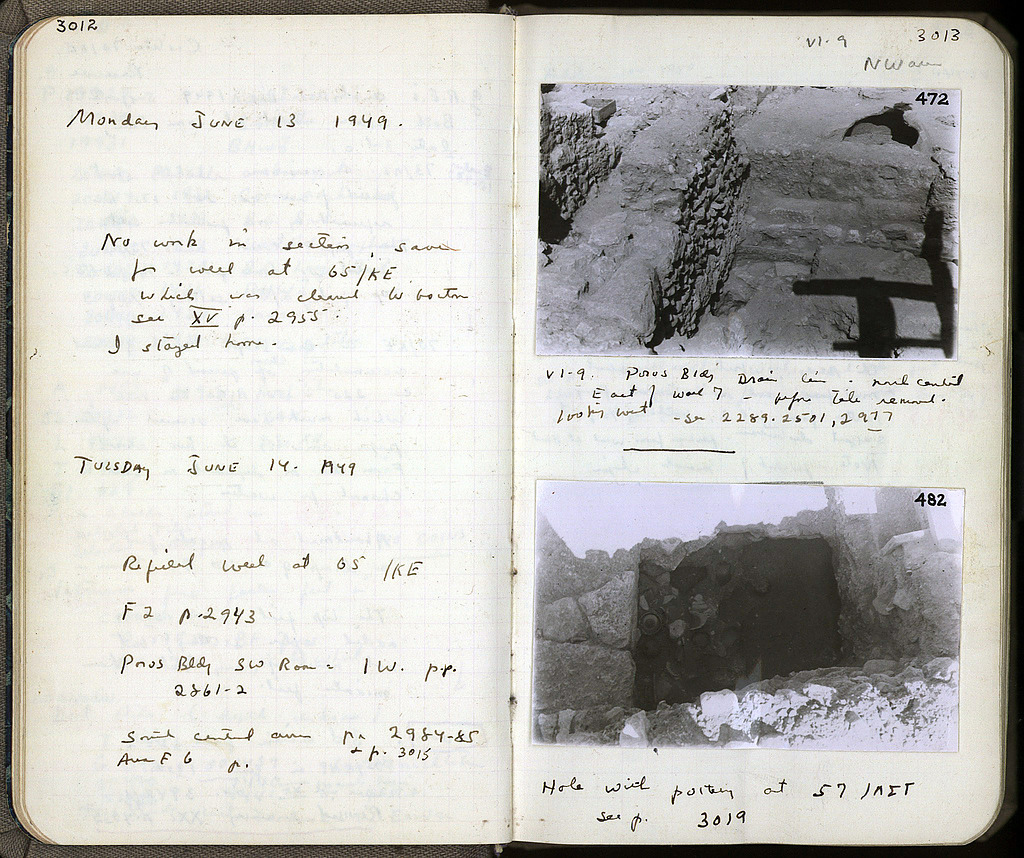 3012
Monday JUNE 13 1949.
No work in section, save
for well at 65/KE
which was cleared to bottom
see XV p. 2955.
I stayed home.
TUESDAY JUNE 14. 1949
Refilled well at 65 /KE
F 2 p. 2943
Poros Bldg SW Room = 1W. pp.
2861-2
South central area pp. 2984-85
+ p. 3015
Area F 6 p.
3013
VI-9
NW area
472
VI-9. Poros Bldg Drain line - north central
East of wall 7 - before removal.
looking west - see 2289. 2501, 2977
482
Hole with pottery at 57 /
see p. 3019